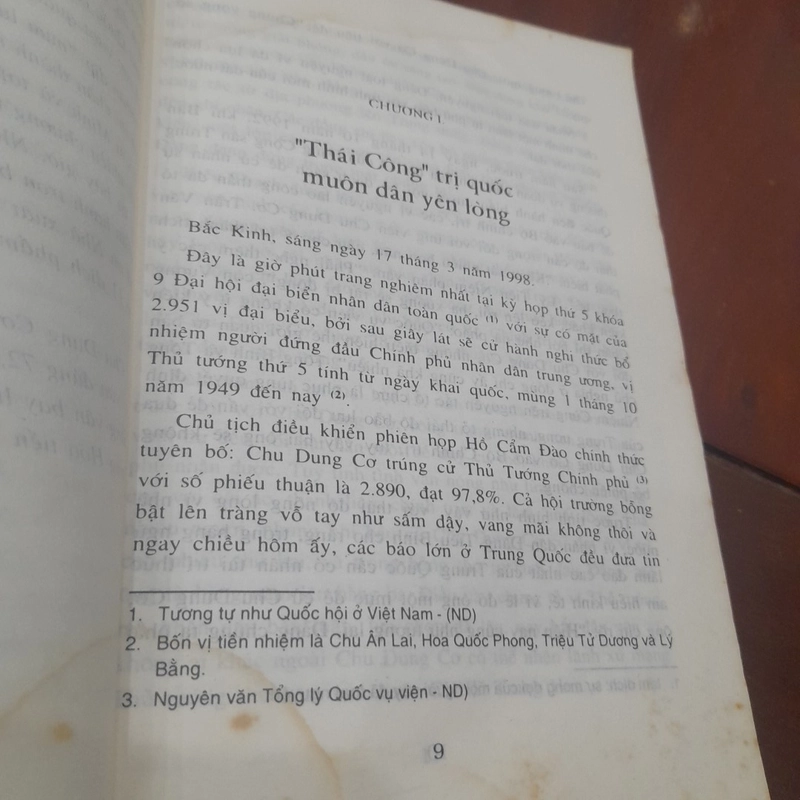 CHƯƠNG I
"Thái Công" trị quốc
muôn dân yên lòng
Bắc Kinh, sáng ngày 17 tháng 3 năm 1998.
Đây là giờ phút trang nghiêm nhất tại kỳ họp thứ 5 khóa
9 Đại hội đại biển nhân dân toàn quốc (1) với sự có mặt của
2.951 vị đại biểu, bởi sau giây lát sẽ cử hành nghi thức bổ
nhiệm người đứng đầu Chính phủ nhân dân trung ương, vị
Thủ tướng thứ 5 tính từ ngày khai quốc, mùng 1 tháng 10
năm 1949 đến nay (2).
Chủ tịch điều khiển phiên họp Hồ Cẩm Đào chính thức
tuyên bố: Chu Dung Cơ trúng cử Thủ Tướng Chính phủ (3)
với số phiếu thuận là 2.890, đạt 97,8%. Cả hội trường bỗng
bật lên tràng vỗ tay như sấm dậy, vang mãi không thôi và
ngay chiều hôm ấy, các báo lớn ở Trung Quốc đều đưa tin
1. Tương tự như Quốc hội ở Việt Nam - (ND)
2. Bốn vị tiền nhiệm là Chu Ân Lai, Hoa Quốc Phong, Triệu Tử Dương và Lý
Bằng.
3. Nguyên văn Tổng lý Quốc vụ viện - ND)
9